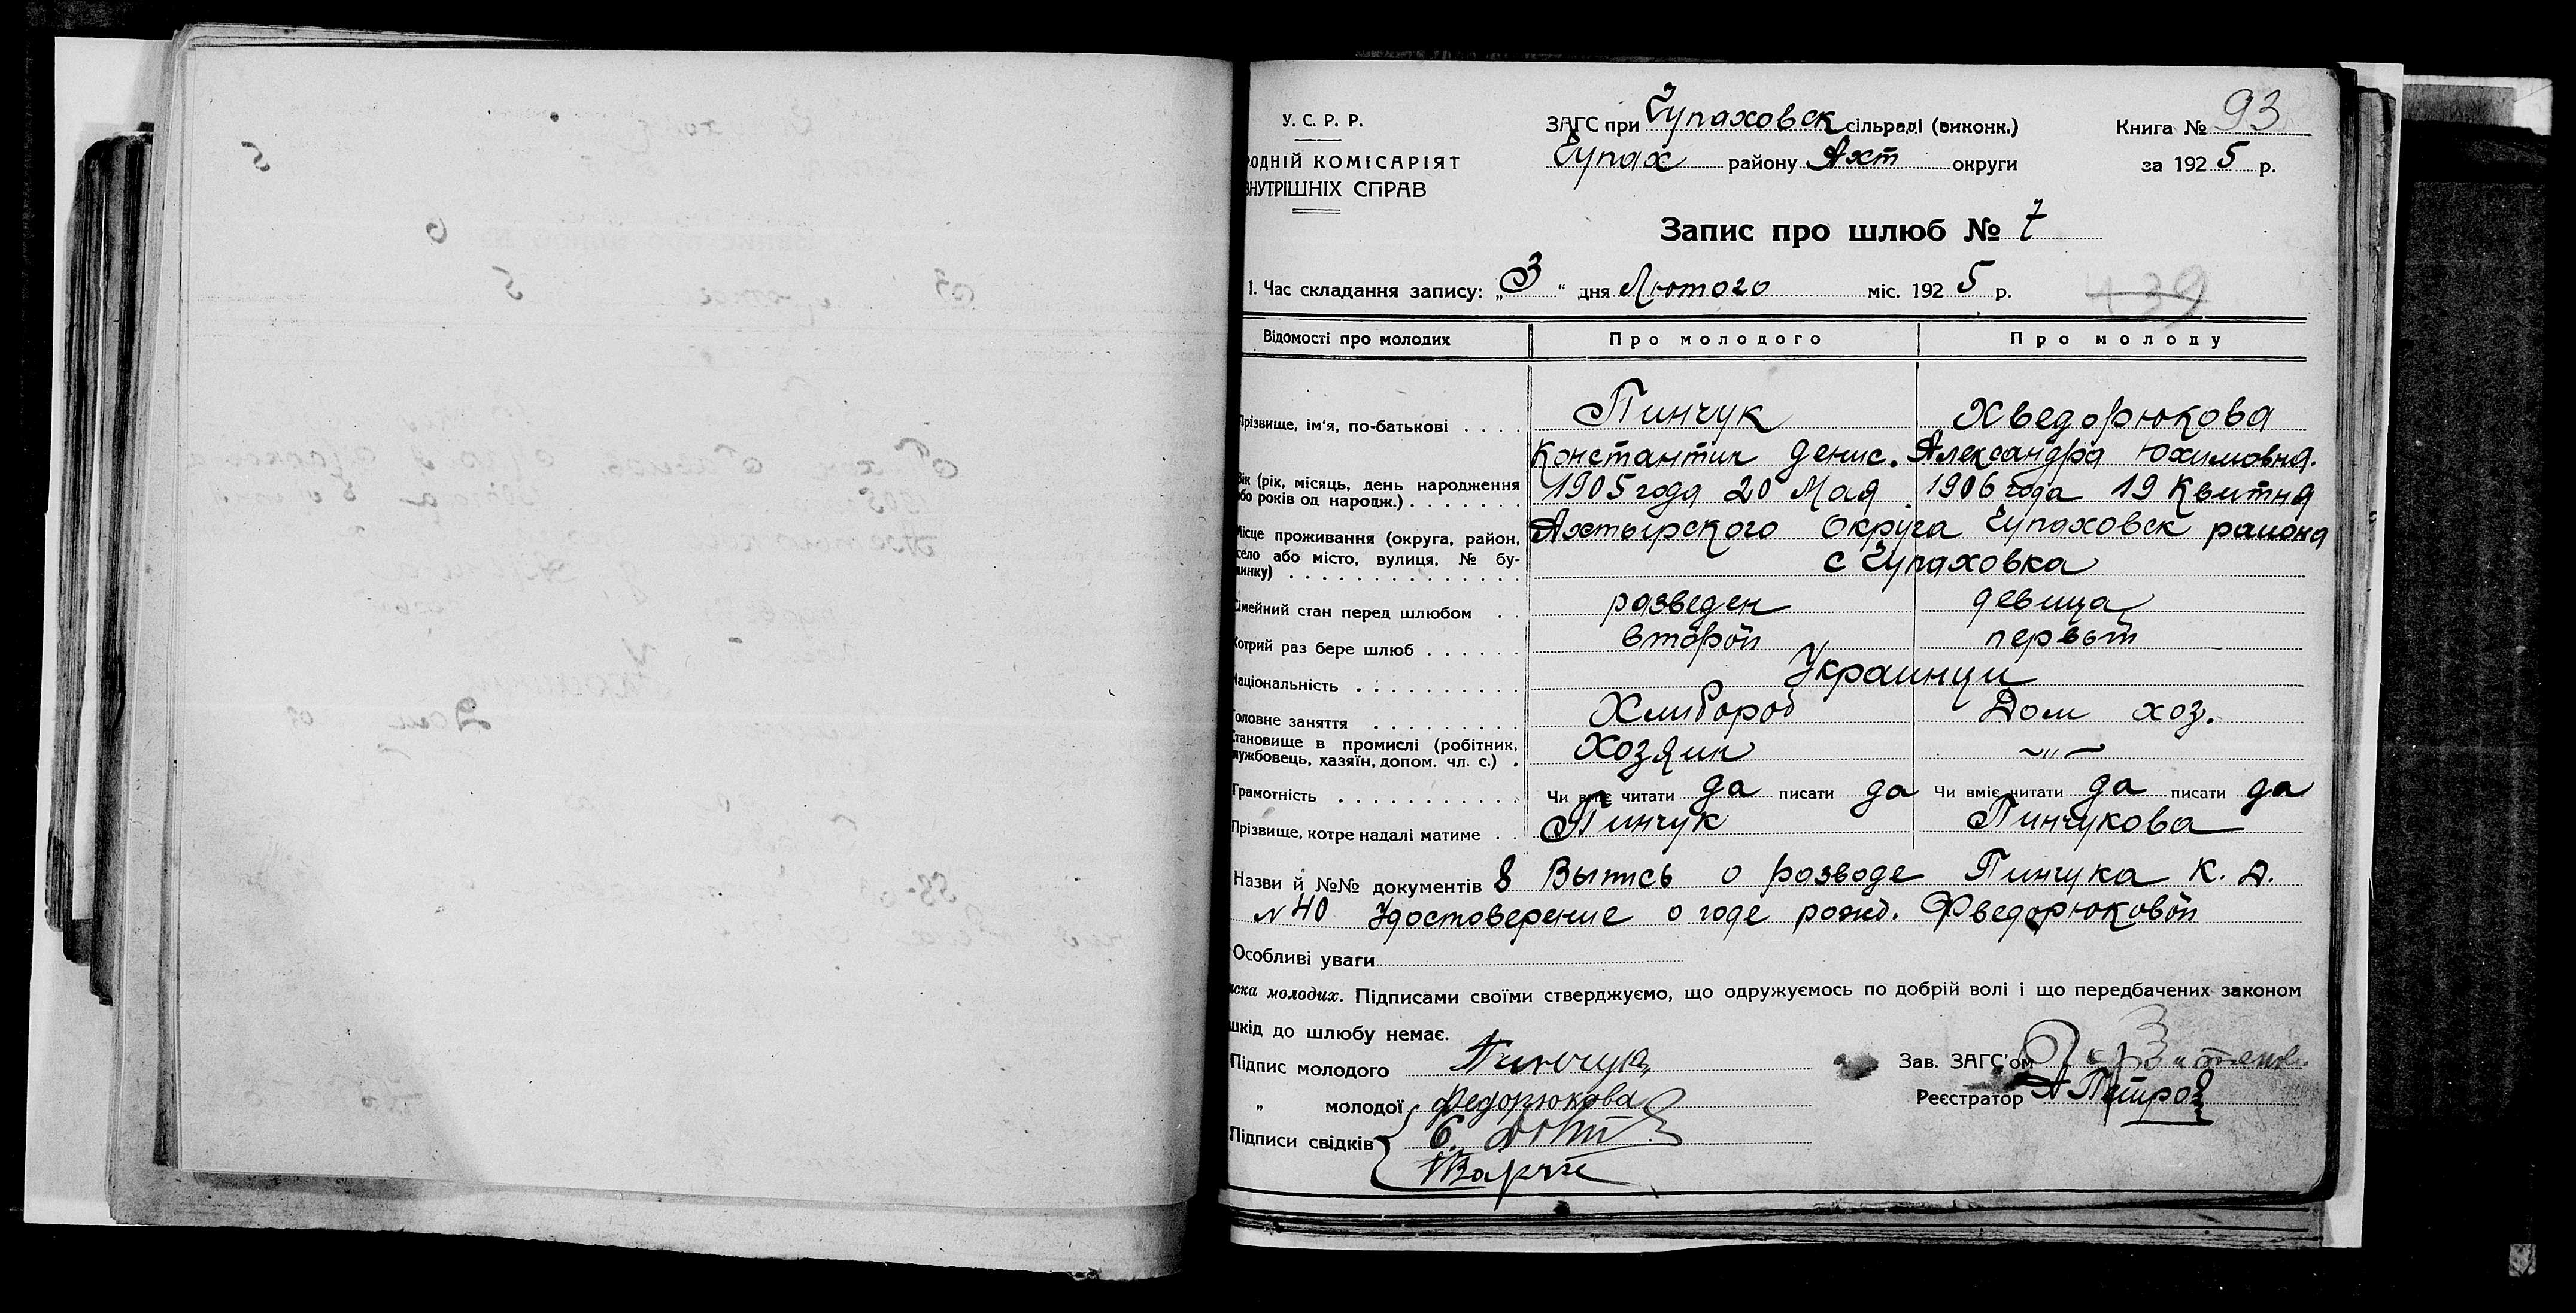 У. С. Р. Р.
РОДНІЙ КОМІСАРІЯТ
ВНУТРІШНІХ СПРАВ
ЗАГС при Чупаховск сільраді (виконк.)
Чупах району Ахт округи
Книга № 93
за 1925 р.
Запис про шлюб № 7
1. Час складання запису: „3“ дня Лютого міс. 1925 р.
439
Відомості про молодих Про молодого Про молоду
Прізвище, ім'я, по-батькові . . . . Пинчук Хведорюкова
Константин Денис. Александра Юхимовна.
Вік (рік, місяць, день народження або років од народж.) . . . . . . . 1905 года 20 Мая 1906 года 19 Квитня
Місце проживання (округа, район, село або місто, вулиця, № будинку) . . . Ахтырского Округа Чупаховск района
с Чупаховка
Сімейний стан перед шлюбом . . розведен девица
Котрий раз бере шлюб . . . . . . второй первый
Національність . . . . . . . . . . Украинци
Головне заняття . . . . . . . . . Хлибороб Дом хоз.
Становище в промислі (робітник, службовець, хазяїн, допом. чл. с.) . Хозяин —"—
Грамотність . . . . . . . . . . . Чи вміє читати да писати да Чи вміє читати да писати да
Прізвище, котре надалі матиме . . Пинчук Пинчукова
Назви й №№ документів 8 Выпись о розводе Пинчука К. Д.
№ 40 Удостоверение о годе рожд. Фведорюковой
Особливі уваги
иска молодих. Підписами своїми стверджуємо, що одружуємось по добрій волі і що передбачених законом
шкід до шлюбу немає.
Підпис молодого Пинчук
„ молодої Федорюкова
Підписи свідків
Зав. ЗАГС'ом
Реєстратор А Петров